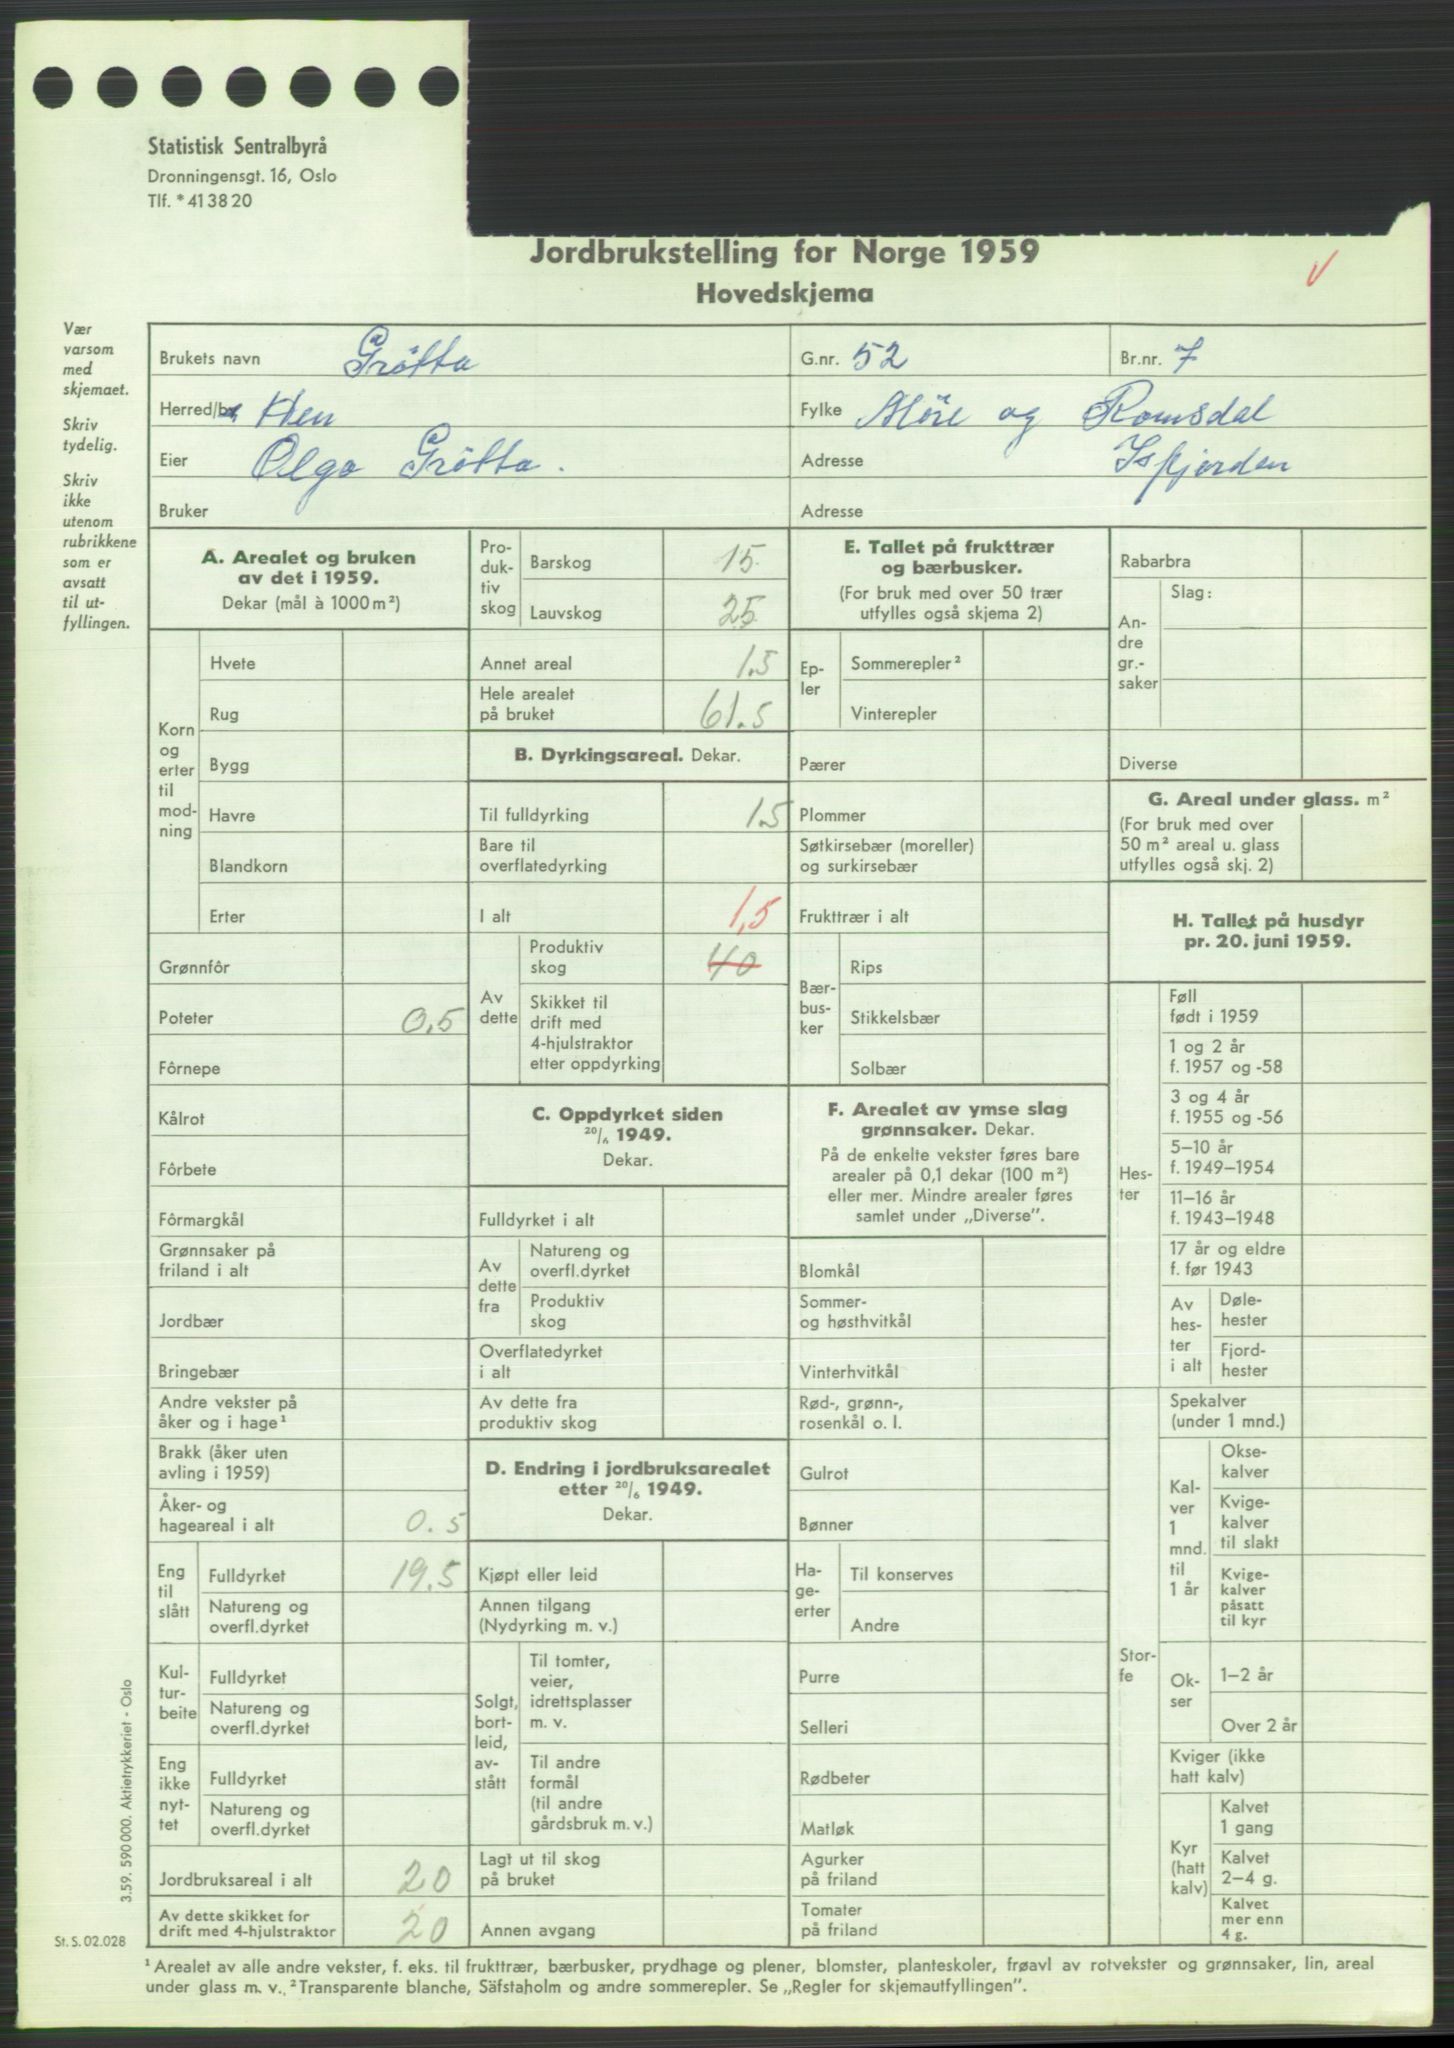 Statistisk Sentralbyrå
Dronningensgt. 16, Oslo
Tlf. * 41 38 20
Jordbrukstelling for Norge 1959
Hovedskjema
V
Vær
varsom
med
skjemaet.
Skriv
tydelig.
Skriv
ikke
utenom
rubrikkene
som er
avsatt
til ut-
fyllingen.
Brukets navn Grötta G.nr. 52 Br.nr. 7
Herred/ Hen Fylke Möre og Romsdal
Eier Olga Grötta. Adresse Isfjorden
Bruker Adresse
A. Arealet og bruken
av det i 1959.
Dekar (mål à 1000 m²)
Korn
og
erter
til
mod-
ning
Hvete
Rug
Bygg
Havre
Blandkorn
Erter
Grønnfôr
Poteter 0,5
Fôrnepe
Kålrot
Fôrbete
Fôrmargkål
Grønnsaker på
friland i alt
Jordbær
Bringebær
Andre vekster på
åker og i hage¹
Brakk (åker uten
avling i 1959)
Åker- og
hageareal i alt 0.5
Eng
til
slått
Fulldyrket 19.5
Natureng og
overfl.dyrket
Kul-
tur-
beite
Fulldyrket
Natureng og
overfl.dyrket
Eng
ikke
nyt-
tet
Fulldyrket
Natureng og
overfl.dyrket
Jordbruksareal i alt 20
Av dette skikket for
drift med 4-hjulstraktor 20
Pro-
duk-
tiv
skog
Barskog 15
Lauvskog 25
Annet areal 1.5
Hele arealet
på bruket 61.5
B. Dyrkingsareal. Dekar.
Til fulldyrking 1.5
Bare til
overflatedyrking
I alt 1,5
Av
dette
Produktiv
skog 40
Skikket til
drift med
4-hjulstraktor
etter oppdyrking
C. Oppdyrket siden
20/6 1949.
Dekar.
Fulldyrket i alt
Av
dette
fra
Natureng og
overfl.dyrket
Produktiv
skog
Overflatedyrket
i alt
Av dette fra
produktiv skog
D. Endring i jordbruksarealet
etter 20/6 1949.
Dekar.
Kjøpt eller leid
Annen tilgang
(Nydyrking m. v.)
Solgt,
bort-
leid,
av-
stått
Til tomter,
veier,
idrettsplasser
m. v.
Til andre
formål
(til andre
gårdsbruk m. v.)
Lagt ut til skog
på bruket
Annen avgang
E. Tallet på frukttrær
og bærbusker.
(For bruk med over 50 trær
utfylles også skjema 2)
Ep-
ler
Sommerepler²
Vinterepler
Pærer
Plommer
Søtkirsebær (moreller)
og surkirsebær
Frukttrær i alt
Bær-
bus-
ker
Rips
Stikkelsbær
Solbær
F. Arealet av ymse slag
grønnsaker. Dekar.
På de enkelte vekster føres bare
arealer på 0,1 dekar (100 m²)
eller mer. Mindre arealer føres
samlet under „Diverse”.
Blomkål
Sommer-
og høsthvitkål
Vinterhvitkål
Rød-, grønn-,
rosenkål o. l.
Gulrot
Bønner
Ha-
ge-
erter
Til konserves
Andre
Purre
Selleri
Rødbeter
Matløk
Agurker
på friland
Tomater
på friland
Rabarbra
An-
dre
gr.-
saker
Slag:
Diverse
G. Areal under glass. m²
(For bruk med over
50 m² areal u. glass
utfylles også skj. 2)
H. Tallet på husdyr
pr. 20. juni 1959.
Hes-
ter
Føll
født i 1959
1 og 2 år
f. 1957 og -58
3 og 4 år
f. 1955 og -56
5–10 år
f. 1949–1954
11–16 år
f. 1943–1948
17 år og eldre
f. før 1943
Av
hes-
ter
i alt
Døle-
hester
Fjord-
hester
Stor-
fe
Spekalver
(under 1 mnd.)
Kal-
ver
1
mnd.
til
1 år
Okse-
kalver
Kvige-
kalver
til slakt
Kvige-
kalver
påsatt
til kyr
Ok-
ser
1–2 år
Over 2 år
Kviger (ikke
hatt kalv)
Kyr
(hatt
kalv)
Kalvet
1 gang
Kalvet
2–4 g.
Kalvet
mer enn
4 g.
3.59. 590 000. Aktietrykkeriet - Oslo
St. S. 02.028
¹ Arealet av alle andre vekster, f. eks. til frukttrær, bærbusker, prydhage og plener, blomster, planteskoler, frøavl av rotvekster og grønnsaker, lin, areal
under glass m. v. ² Transparente blanche, Säfstaholm og andre sommerepler. Se „Regler for skjemautfyllingen”.